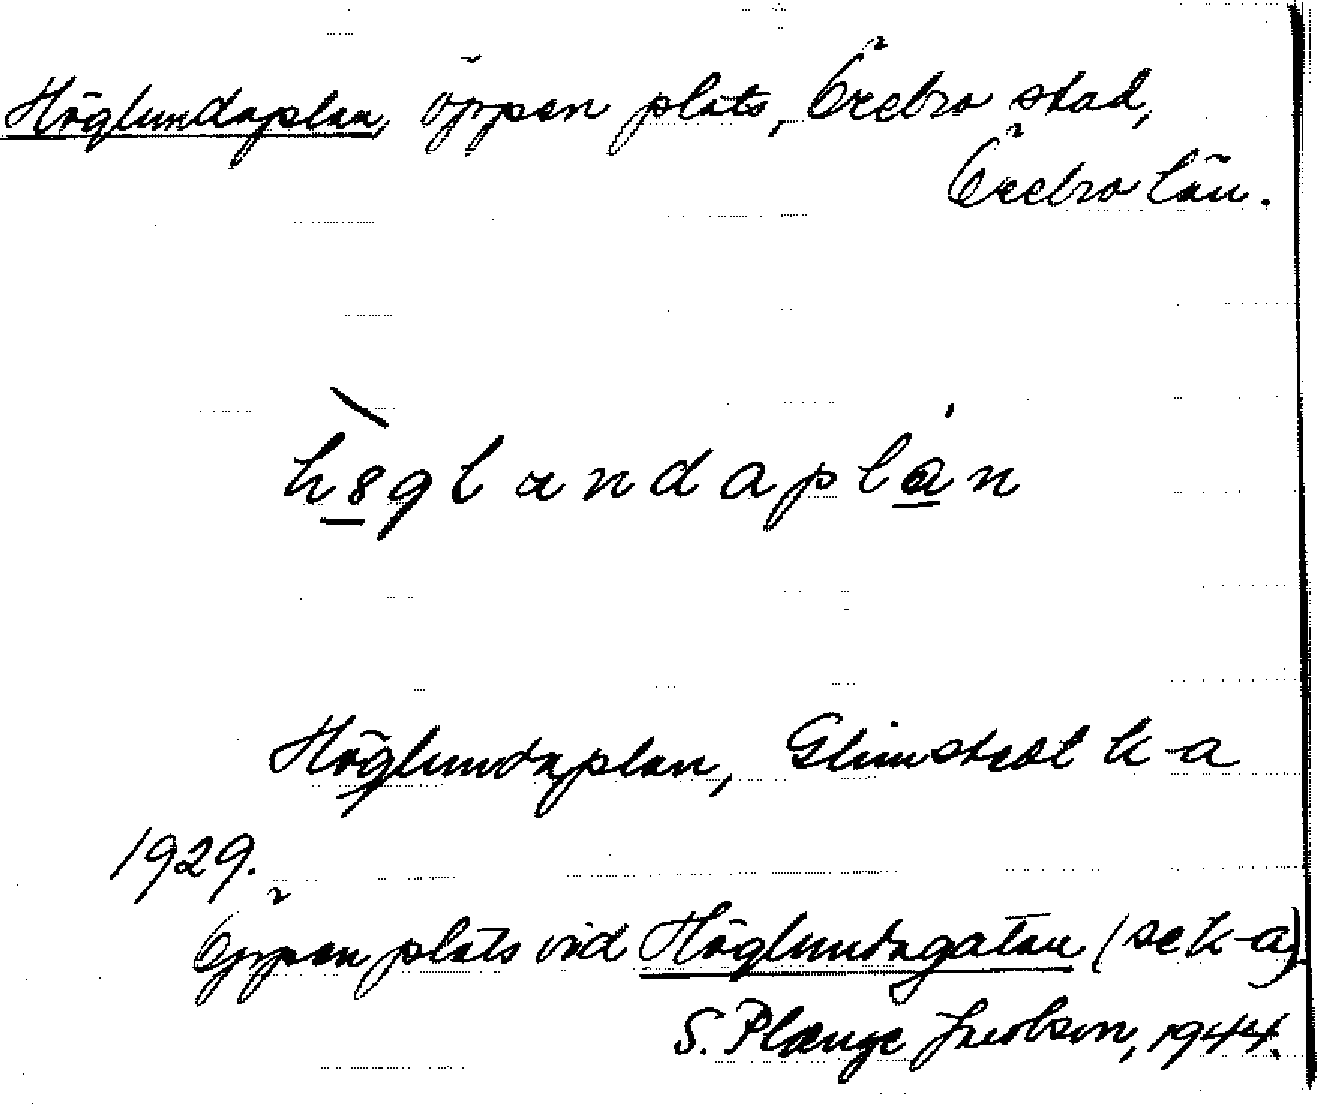 Höglundaplan, öppen plats, Örebro stad,
Örebro län.
h8glundaplan
Höglundaplan, Glimstedt k-a
1929.
Öppen plats vid Höglundagatan (se k-a).
S. Plænge Jacobson, 1944.